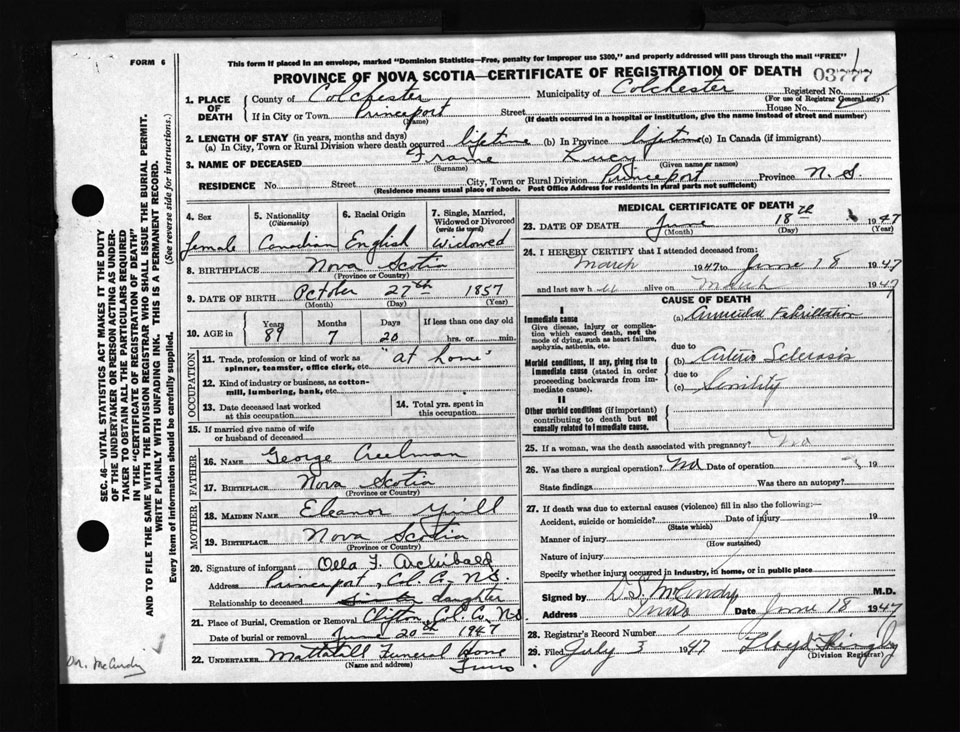 FORM 6
This form if placed in an envelope, marked "Dominion Statistics—Free, penalty for improper use $300," and properly addressed will pass through the mail "FREE"
PROVINCE OF NOVA SCOTIA—CERTIFICATE OF REGISTRATION OF DEATH 03777
1. PLACE OF DEATH
County of Colchester Municipality of Colchester Registered No.
(For use of Registrar General only)
If in City or Town Princeport Street House No.
(Name) (If death occurred in a hospital or institution, give the name instead of street and number)
2. LENGTH OF STAY (in years, months and days)
(a) In City, Town or Rural Division where death occurred lifetime (b) In Province lifetime (c) In Canada (if immigrant)
3. NAME OF DECEASED Frame Lucy
(Surname) (Given name or names)
RESIDENCE No. Street City, Town or Rural Division Princeport Province N. S.
(Residence means usual place of abode. Post Office Address for residents in rural parts not sufficient)
4. Sex female
5. Nationality (Citizenship) Canadian
6. Racial Origin English
7. Single, Married, Widowed or Divorced (write the word) Widowed
8. BIRTHPLACE Nova Scotia
(Province or Country)
9. DATE OF BIRTH October 27th 1857
(Month) (Day) (Year)
10. AGE in Years 89 Months 7 Days 20 If less than one day old hrs. or min.
OCCUPATION
11. Trade, profession or kind of work as spinner, teamster, office clerk, etc. "at home"
12. Kind of industry or business, as cotton-mill, lumbering, bank, etc.
13. Date deceased last worked at this occupation
14. Total yrs. spent in this occupation
15. If married give name of wife or husband of deceased
FATHER
16. NAME George Creelman
17. BIRTHPLACE Nova Scotia
(Province or Country)
MOTHER
18. MAIDEN NAME Eleanor
19. BIRTHPLACE Nova Scotia
(Province or Country)
20. Signature of informant Olla F. Archibald
Address Princeport, Col. Co., N.S.
Relationship to deceased daughter
21. Place of Burial, Cremation or Removal Clifton, Col. Co. N.S.
Date of burial or removal June 20th 1947
22. UNDERTAKER Mattatall Funeral Home
(Name and address) Truro
MEDICAL CERTIFICATE OF DEATH
23. DATE OF DEATH June 18th 1947
(Month) (Day) (Year)
24. I HEREBY CERTIFY that I attended deceased from:
March 1947 to June 18 1947
and last saw h alive on March 1947
CAUSE OF DEATH
I
Immediate cause
Give disease, injury or complication which caused death, not the mode of dying, such as heart failure, asphyxia, asthenia, etc.
(a) Auricular Fabrillation
due to
Morbid conditions, if any, giving rise to immediate cause (stated in order proceeding backwards from immediate cause).
(b) Arterio Sclerosis
due to
(c) Senility
II
Other morbid conditions (if important) contributing to death but not causally related to immediate cause.
25. If a woman, was the death associated with pregnancy? No
26. Was there a surgical operation? No Date of operation 19
State findings Was there an autopsy?
27. If death was due to external causes (violence) fill in also the following:—
Accident, suicide or homicide? Date of injury 19
(State which)
Manner of injury
(How sustained)
Nature of injury
Specify whether injury occurred in industry, in home, or in public place
Signed by D.S. McCurdy M.D.
Address Truro Date June 18 1947
28. Registrar's Record Number 1
29. Filed July 3 1947 Floyd
(Division Registrar)
SEC. 46—VITAL STATISTICS ACT MAKES IT THE DUTY
OF THE UNDERTAKER OR PERSON ACTING AS UNDER-
TAKER TO OBTAIN ALL THE PARTICULARS REQUIRED
IN THE "CERTIFICATE OF REGISTRATION OF DEATH"
AND TO FILE THE SAME WITH THE DIVISION REGISTRAR WHO SHALL ISSUE THE BURIAL PERMIT.
WRITE PLAINLY WITH UNFADING INK. THIS IS A PERMANENT RECORD.
Every item of information should be carefully supplied. (See reverse side for instructions.)
Dr. McCurdy